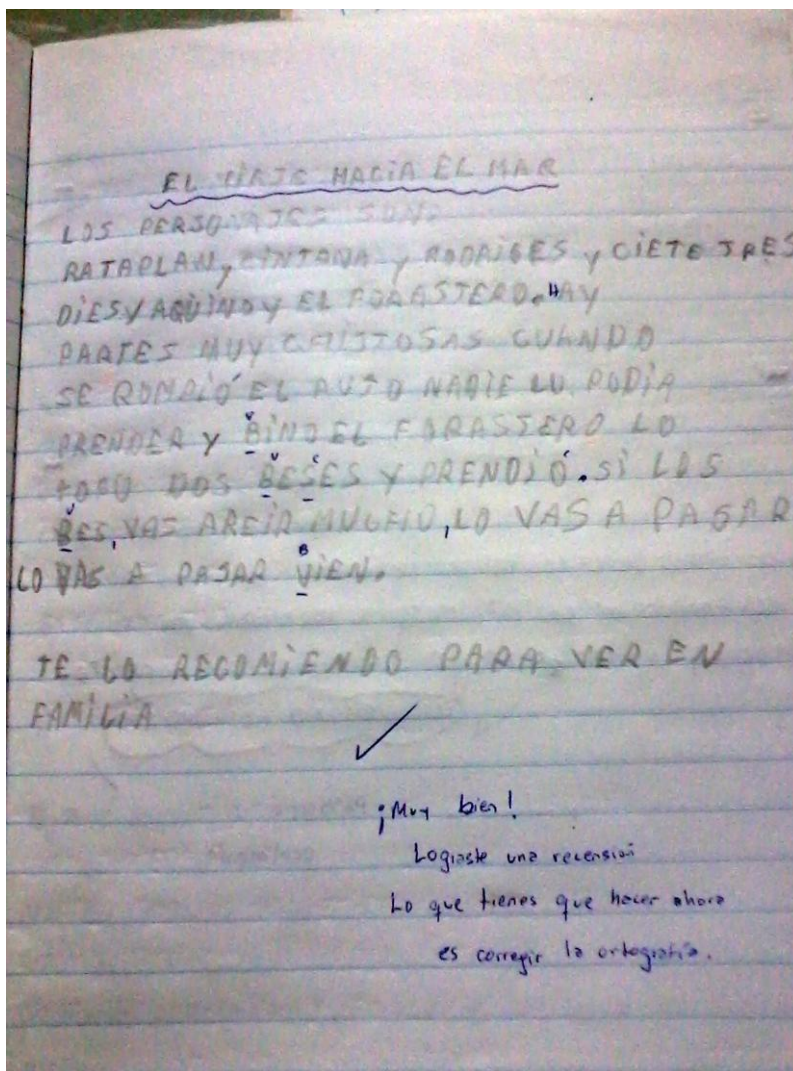 EL VIAJE HACIA EL MAR
LOS PERSONAJES SON:
RATAPLAN, CINTANA Y RODRIGES Y CIETE TRES
DIES VAQUINO Y EL FORASTERO. HAY
PARTES MUY CHISTOSAS CUANDO
SE ROMPIÓ EL AUTO NADIE LO PODÍA
PRENDER Y BINO EL FORASTERO LO
TOCO DOS BESES Y PRENDIÓ. SI LAS
BES, VAS A REIR MUCHO, LO VAS A PASAR
LO VAS A PASAR VIEN.
TE LO RECOMIENDO PARA VER EN
FAMILIA
¡Muy bien!
Lograste una recensión
Lo que tienes que hacer ahora
es corregir la ortografía.